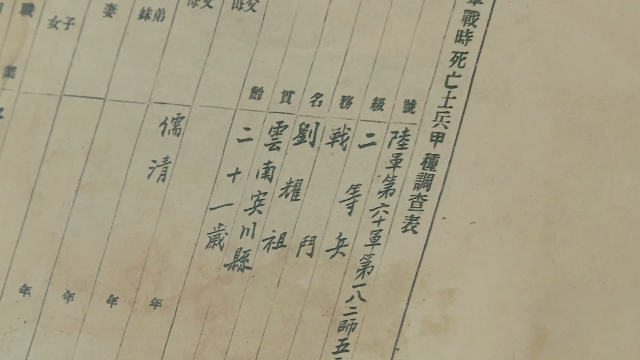 軍戰時死亡士兵甲種調查表
號 陸軍第六十軍第一八二師五
級 二等兵
務 戰鬥
名 劉耀祖
貫 雲南宾川縣
齡 二十一歲
母父
母父
妹弟 儒清 年
妻 年
女子 年
職業 年